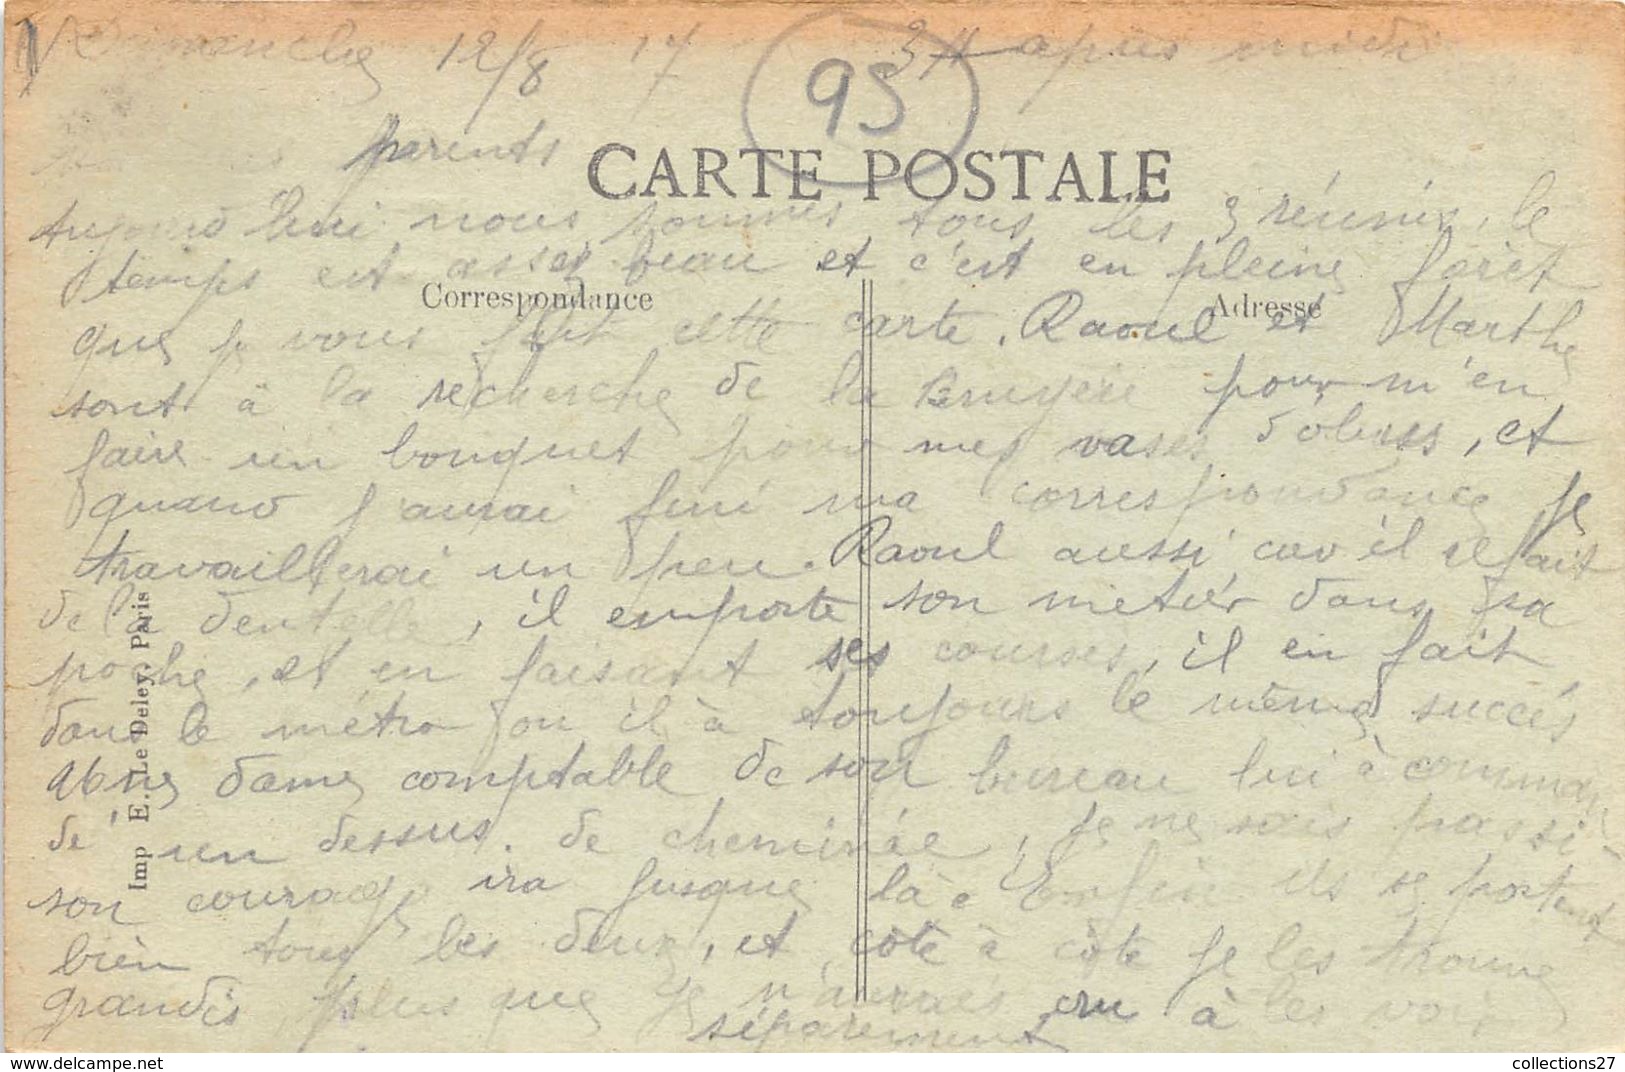 Dimanche 12/8 17 3H apus midi
95
parents
CARTE POSTALE
aujourd hui nous sommes tous les 3 réunis, le
temps est assez beau et c'est en pleine forêt
Correspondance
Adresse
que je vous fait cette carte. Raoul et Marthe
sont à la recherche de la Bruyère pour m'en
faire un bouquet pour mes vases d'obuss, et
quand j'aurai fini ma correspondance je
travaillerai un peu. Raoul aussi car il refait
de la dentelle, il emporte son metier dans sa
poche, et en faisant ses courses, il en fait
dans le métro ou il à toujours le même succès
une dame comptable de son bureau lui à comman
dé un dessus de cheminée, je ne sais pas si
son courage ira jusque là. Enfin ils se portent
bien tous les deux, et côte à côte je les trouve
grandis plus que je n'aurais cru à les voir
séparement
Imp E. Le Deley, Paris
collections27